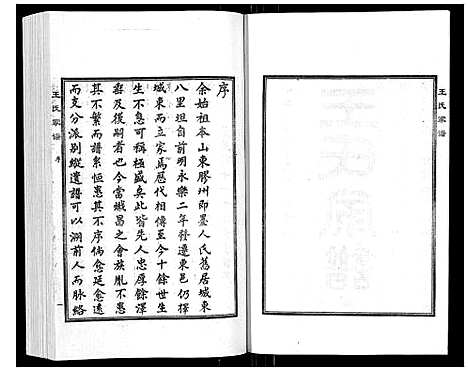 序
余始祖本山東膠州即墨人氏舊居城東
八里坦自前明永樂二年發遷東邑仍擇
城東而立家焉歷代相傳至今十餘世生
生不息可稱極盛矣此皆先人忠厚餘澤
覃及後嗣者也今當熾昌之會族胤不患
其不繁而譜系恒患其不序倘愈延愈遠
而支分派別縱遺譜可以溯前人而脉絡
王氏家譜
序
一
王氏家譜